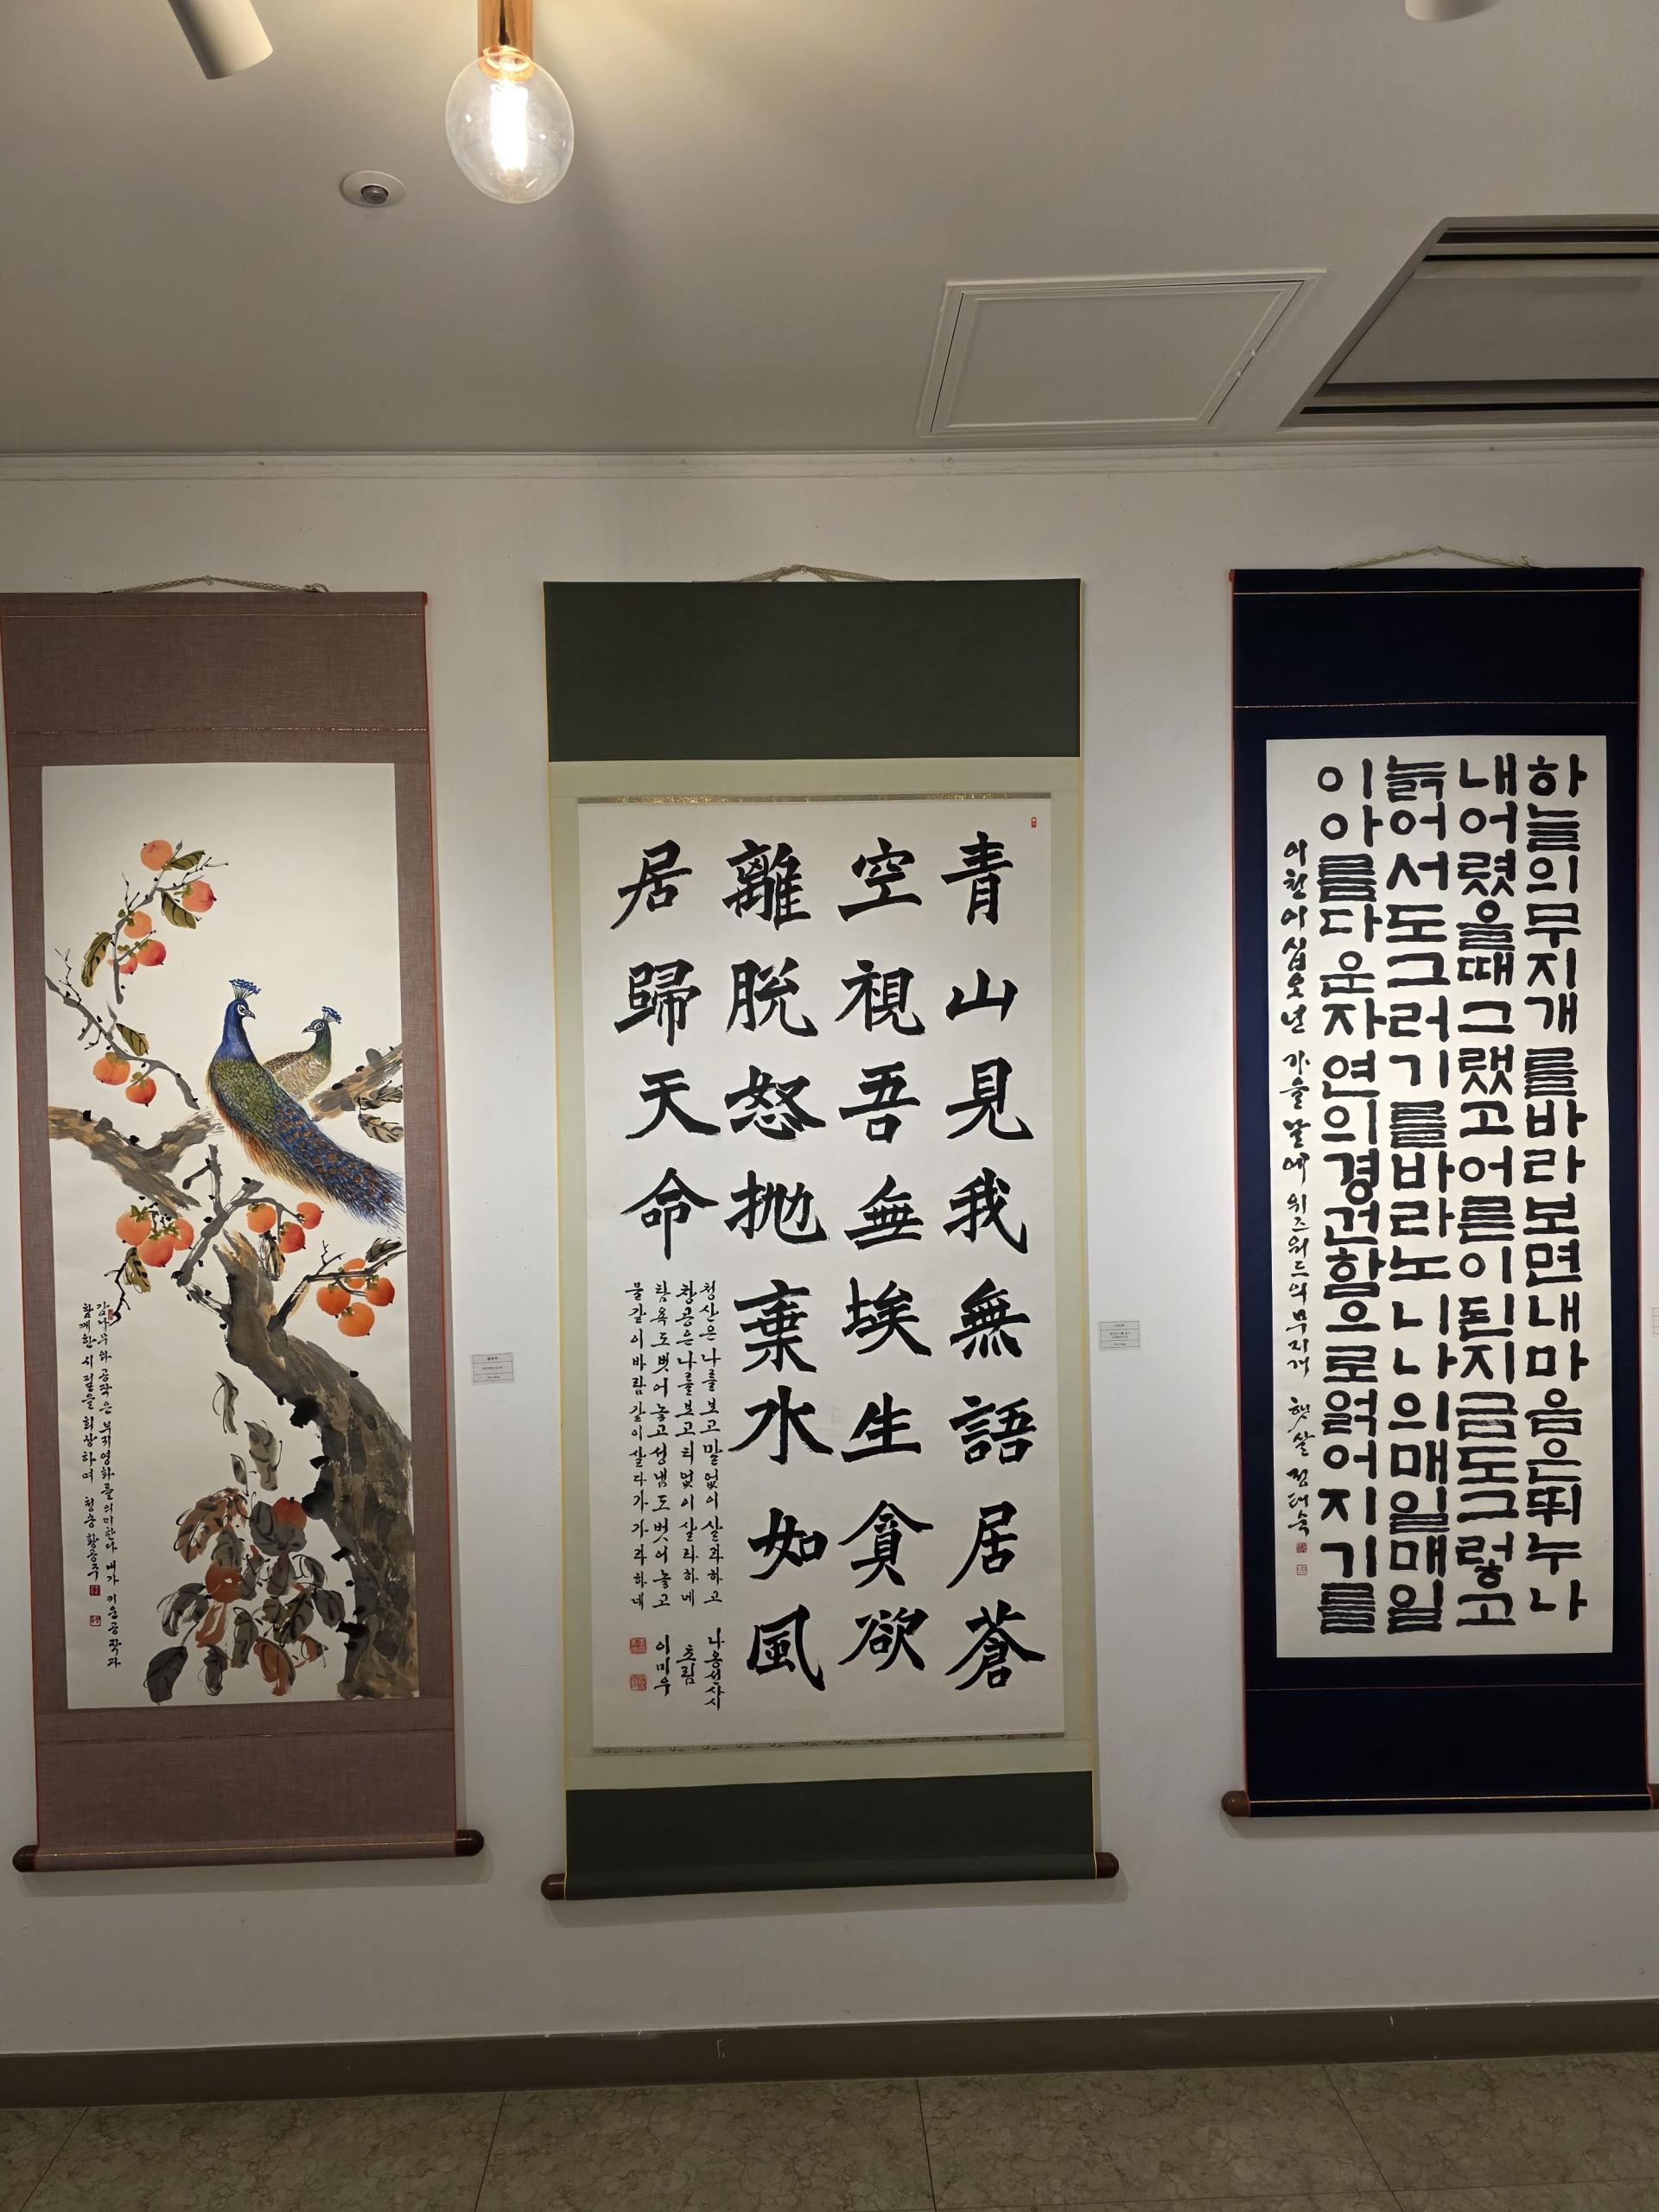 감나무와 공작은 부귀영화를 의미한다 내가 키운 공작과
함께한 시절을 회상하며 청송 황공주
青山見我無語居蒼
空視吾無埃生貪欲
離脫怒抛棄水如風
居歸天命
청산은 나를 보고 말없이 살라하고
창공은 나를 보고 티없이 살라하네
탐욕도 벗어놓고 성냄도 벗어놓고
물같이 바람같이 살다가 가라하네
나옹선사시
초림
이미우
하늘의무지개를바라보면내마음은뛰누나
내어렸을때그랬고어른이된지금도그렇고
늙어서도그러기를바라노니나의매일매일
이아름다운자연의경건함으로얽어지기를
이천이십오년 가을날에 워즈워드의 무지개 햇살 정태숙